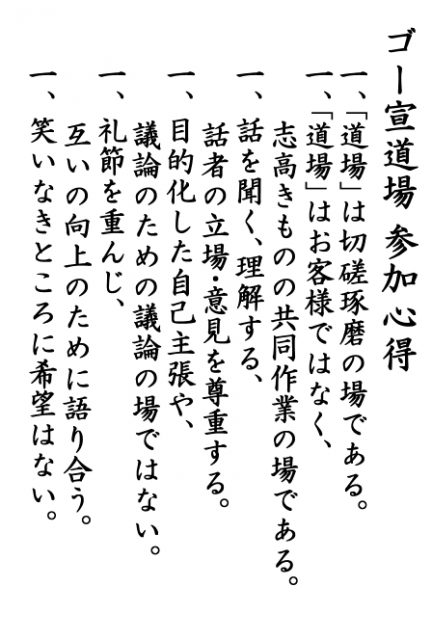 ゴー宣道場 参加心得
一、「道場」は切磋琢磨の場である。
一、「道場」はお客様ではなく、
志高きものの共同作業の場である。
一、話を聞く、理解する、
話者の立場・意見を尊重する。
一、目的化した自己主張や、
議論のための議論の場ではない。
一、礼節を重んじ、
互いの向上のために語り合う。
一、笑いなきところに希望はない。